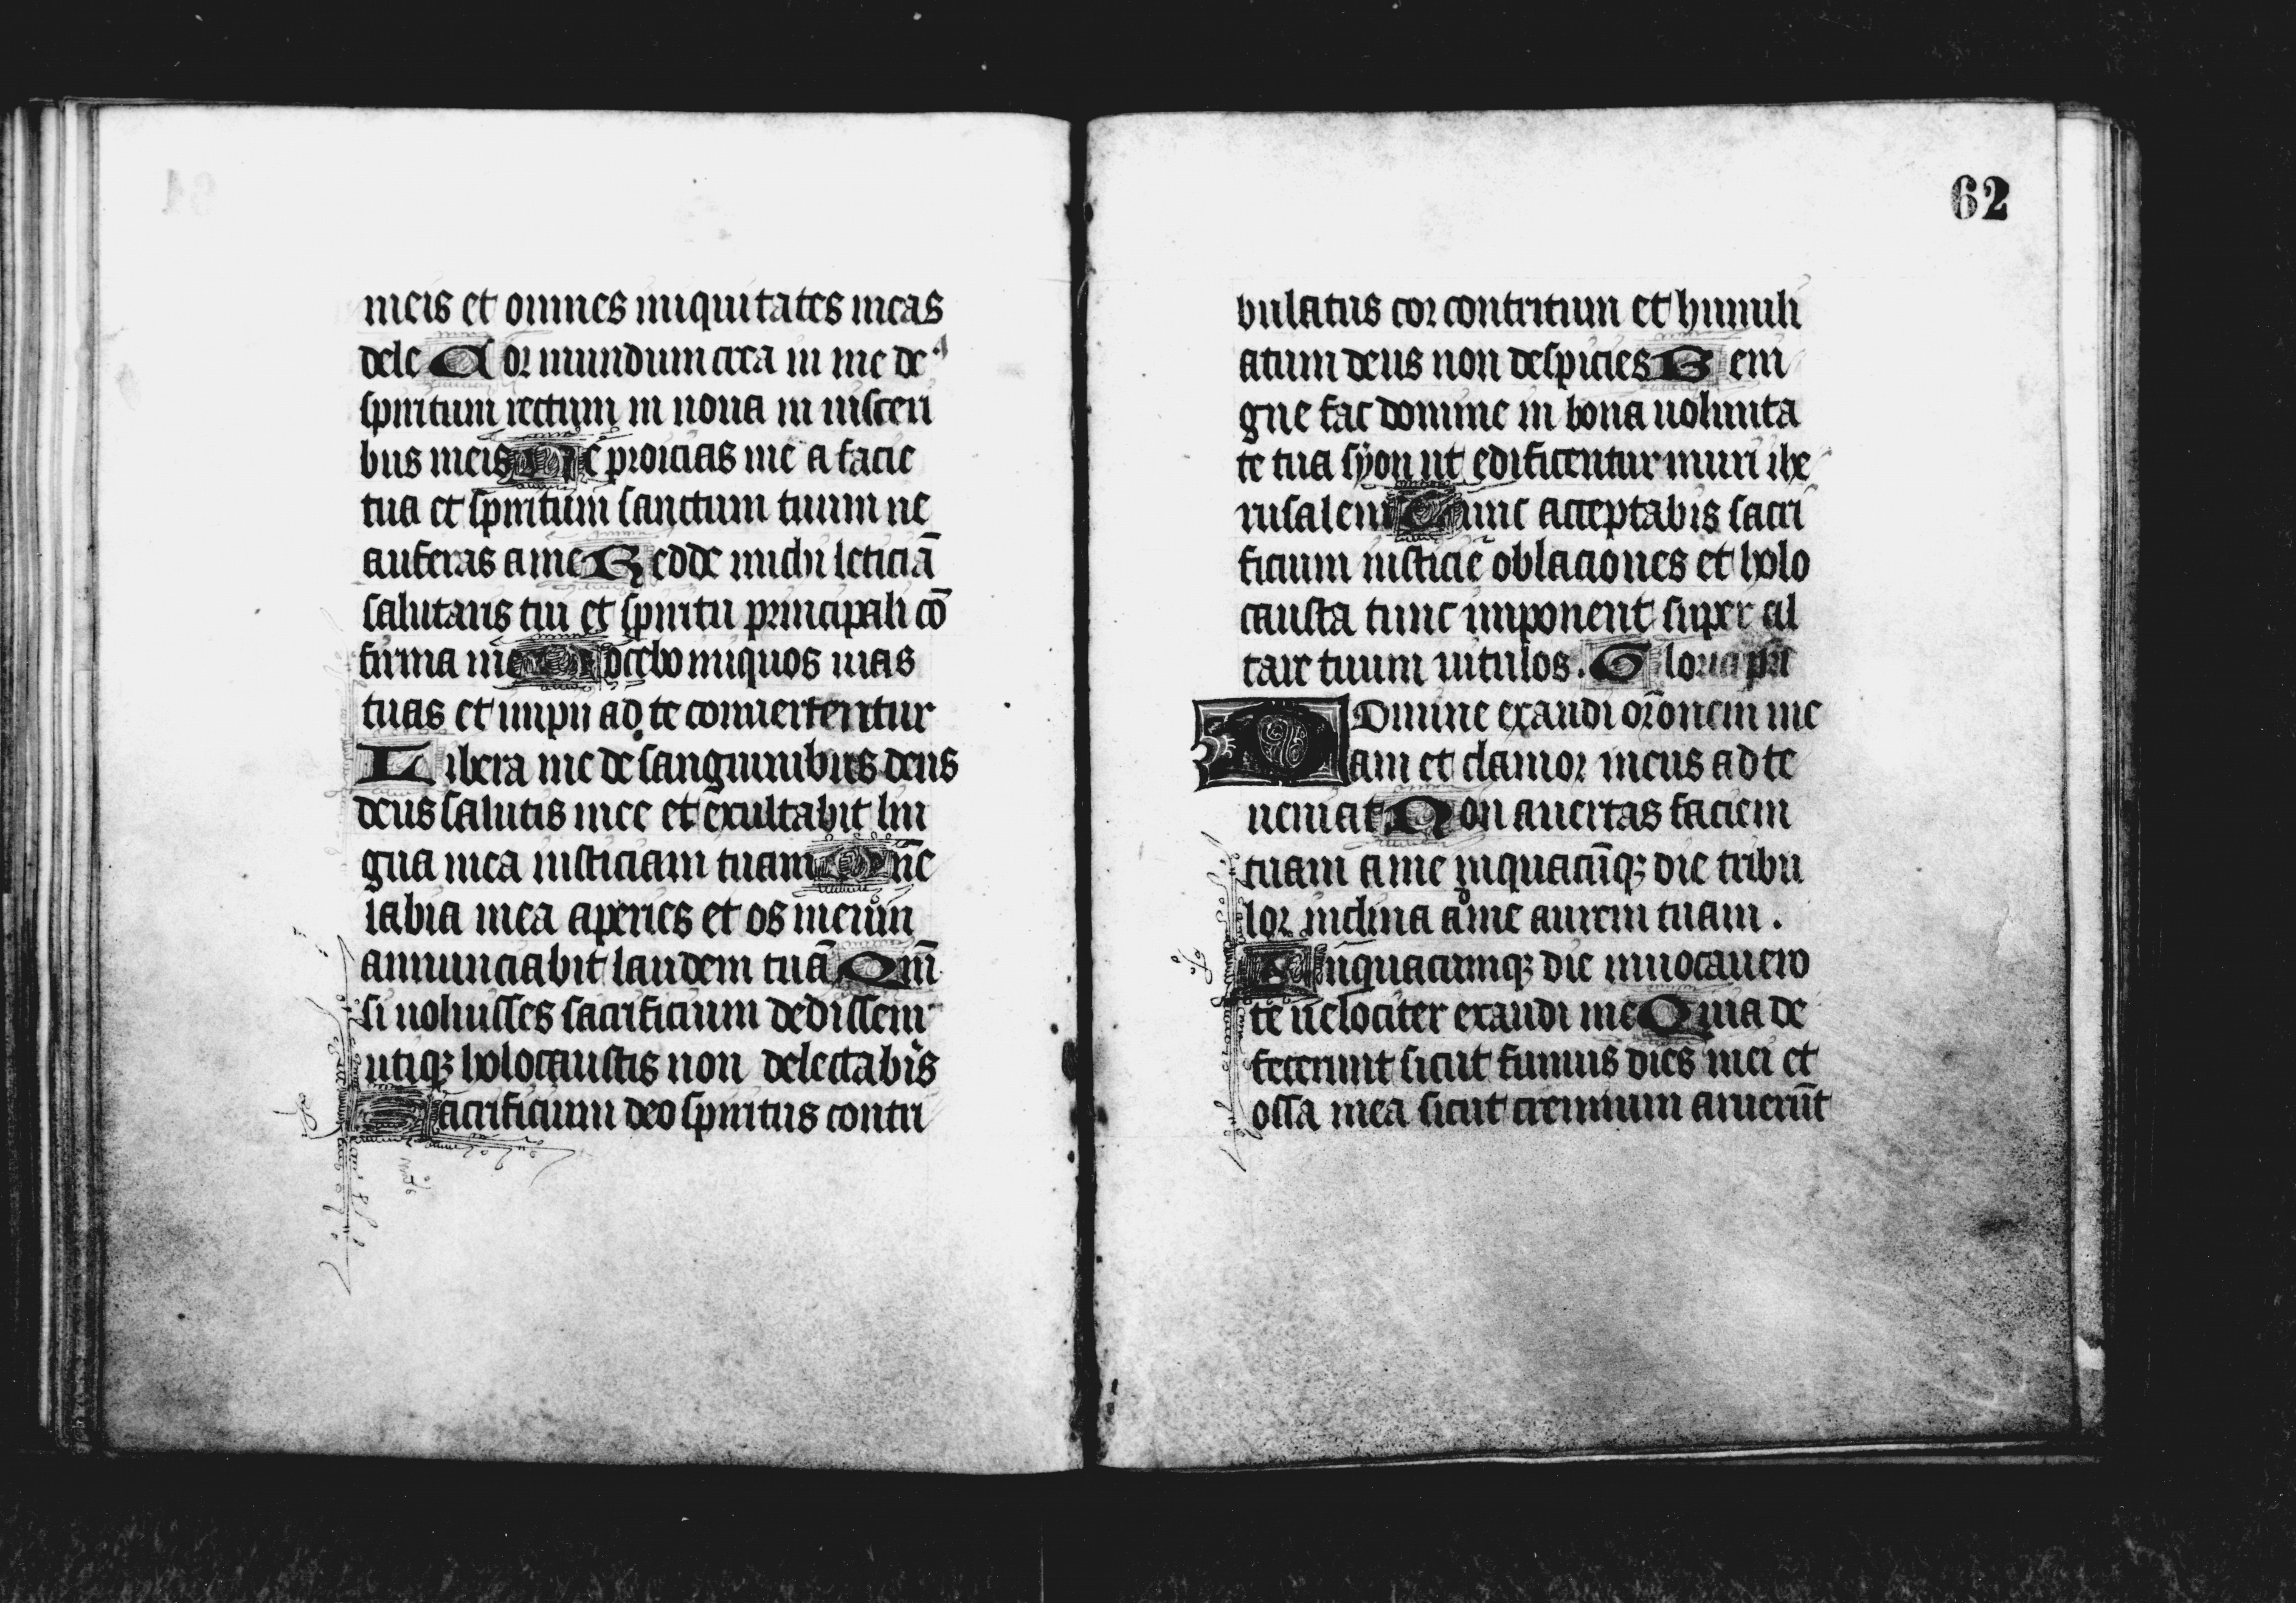 meis et omnes iniquitates meas
dele Cor mundum crea in me de⁹
spiritum rectum in noua in visceri
bus meis Ne proicias me a facie
tua et spiritum sanctum tuum ne
auferas a me Redde michi leticiā
salutaris tui et spiritu principali cō
firma me Docebo iniquos uias
tuas et impii ad te conuertentur
Libera me de sanguinibus deus
deus salutis mee et exultabit lin
gua mea iusticiam tuam Dn̄e
labia mea aperies et os meum
annunciabit laudem tuā Qm̄
si uoluisses sacrificium dedissem
utiqꝫ holocaustis non delectabis
Sacrificium deo spiritus contri
62
bulatus cor contritum et humili
atum deus non despicies Beni
gne fac domine in bona uolunta
te tua syon ut edificentur muri ihe
rusalem Tunc acceptabis sacri
ficium iusticie oblaciones et holo
causta tunc imponent super al
tare tuum uitulos. Gloria pr̄i
Domine exaudi or̄onem me
am et clamor meus ad te
ueniat Non auertas faciem
tuam a me inquacūqꝫ die tribu
lor inclina ad me aurem tuam.
Inquacumqꝫ die inuocauero
te uelociter exaudi me Quia de
fecerunt sicut fumus dies mei et
ossa mea sicut cremium aruerūt